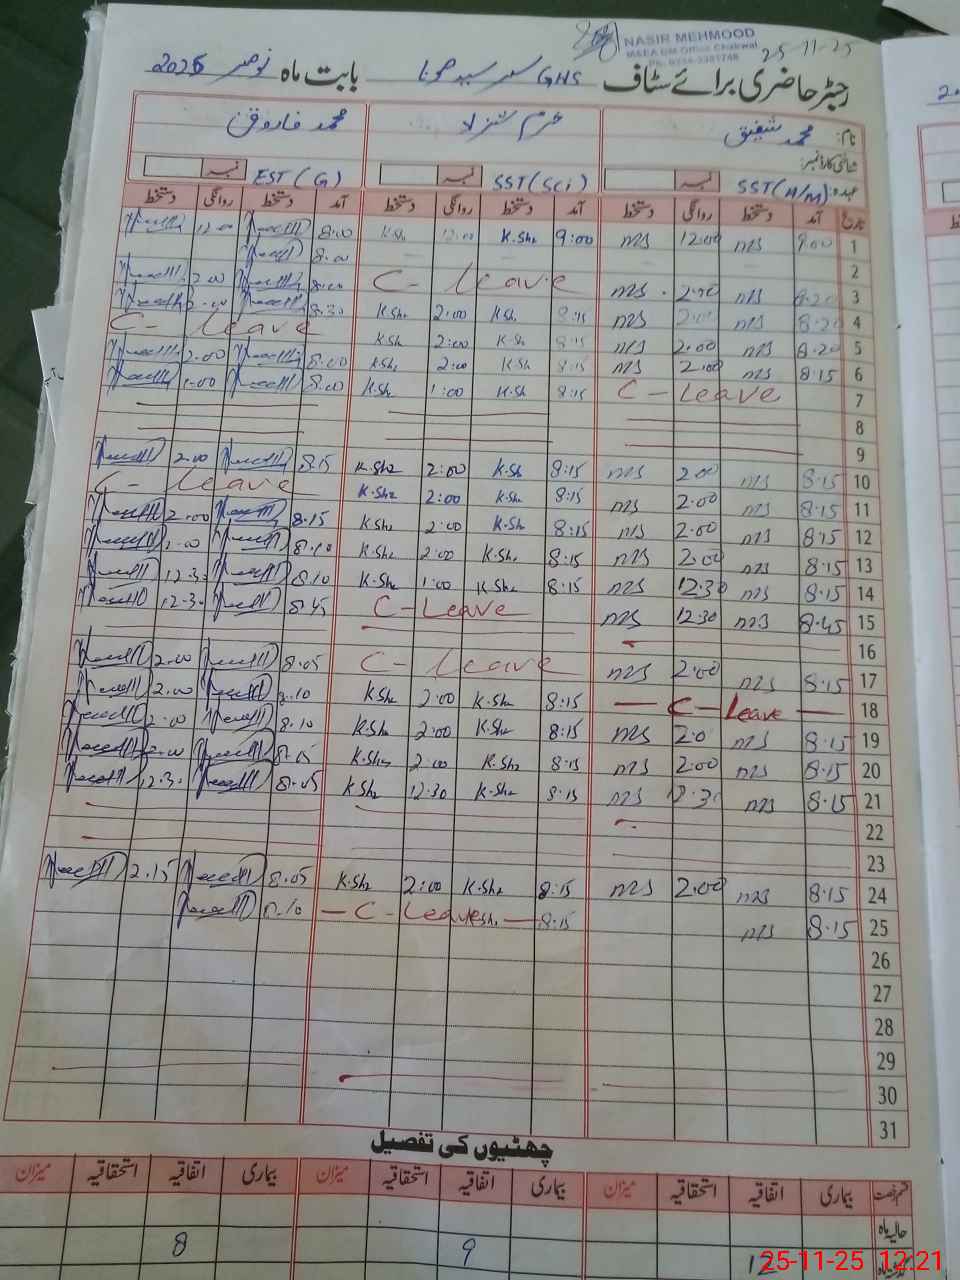 NASIR MEHMOOD
M&EA DM Office Chakwal
25-11-25
رجسٹر حاضری برائے سٹاف GHS بابت ماہ نومبر 2025
نام: محمد شفیق خرم شہزاد محمد فاروق
شناختی کارڈ نمبر:
عہدہ: SST(H/M) SST(Sci) EST(G)
تاریخ آمد دستخط روانگی دستخط آمد دستخط روانگی دستخط آمد دستخط روانگی دستخط
1 9:00 ms 12:00 ms 9:00 K.Sh 12:00 K.Sh 8:00 12:00
2 8:00
3 8:20 ms 2:00 ms C - Leave 8:00 2:00
4 8:20 ms 2:00 ms 8:15 K.Sh 2:00 K.Sh 8:30 2:00
5 8:20 ms 2:00 ms 8:15 K.Sh 2:00 K.Sh C - Leave
6 8:15 ms 2:00 ms 8:15 K.Sh 2:00 K.Sh 8:00 2:00
7 C - Leave 8:15 K.Sh 1:00 K.Sh 8:00 1:00
8
9
10 8:15 ms 2:00 ms 8:15 K.Sh 2:00 K.Sh 8:15 2:00
11 8:15 ms 2:00 ms 8:15 K.Sh 2:00 K.Sh C - Leave
12 8:15 ms 2:00 ms 8:15 K.Sh 2:00 K.Sh 8:15 2:00
13 8:15 ms 2:00 ms 8:15 K.Sh 2:00 K.Sh 8:10 2:00
14 8:15 ms 12:30 ms 8:15 K.Sh 1:00 K.Sh 8:10 12:30
15 8:45 ms 12:30 ms C - Leave 8:45 12:30
16
17 8:15 ms 2:00 ms C - Leave 8:05 2:00
18 C - Leave 8:15 K.Sh 2:00 K.Sh 8:10 2:00
19 8:15 ms 2:0 ms 8:15 K.Sh 2:00 K.Sh 8:10 2:00
20 8:15 ms 2:00 ms 8:15 K.Sh 2:00 K.Sh 8:05 2:00
21 8:15 ms 12:30 ms 8:15 K.Sh 12:30 K.Sh 8:05 12:30
22
23
24 8:15 ms 2:00 ms 8:15 K.Sh 2:00 K.Sh 8:05 2:15
25 8:15 ms 8:15 C - Leave 8:10
26
27
28
29
30
31
چھٹیوں کی تفصیل
قسم رخصت بیماری اتفاقیہ استحقاقیہ میزان بیماری اتفاقیہ استحقاقیہ میزان بیماری اتفاقیہ استحقاقیہ میزان
حالیہ ماہ
12 9 8
25-11-25 12:21